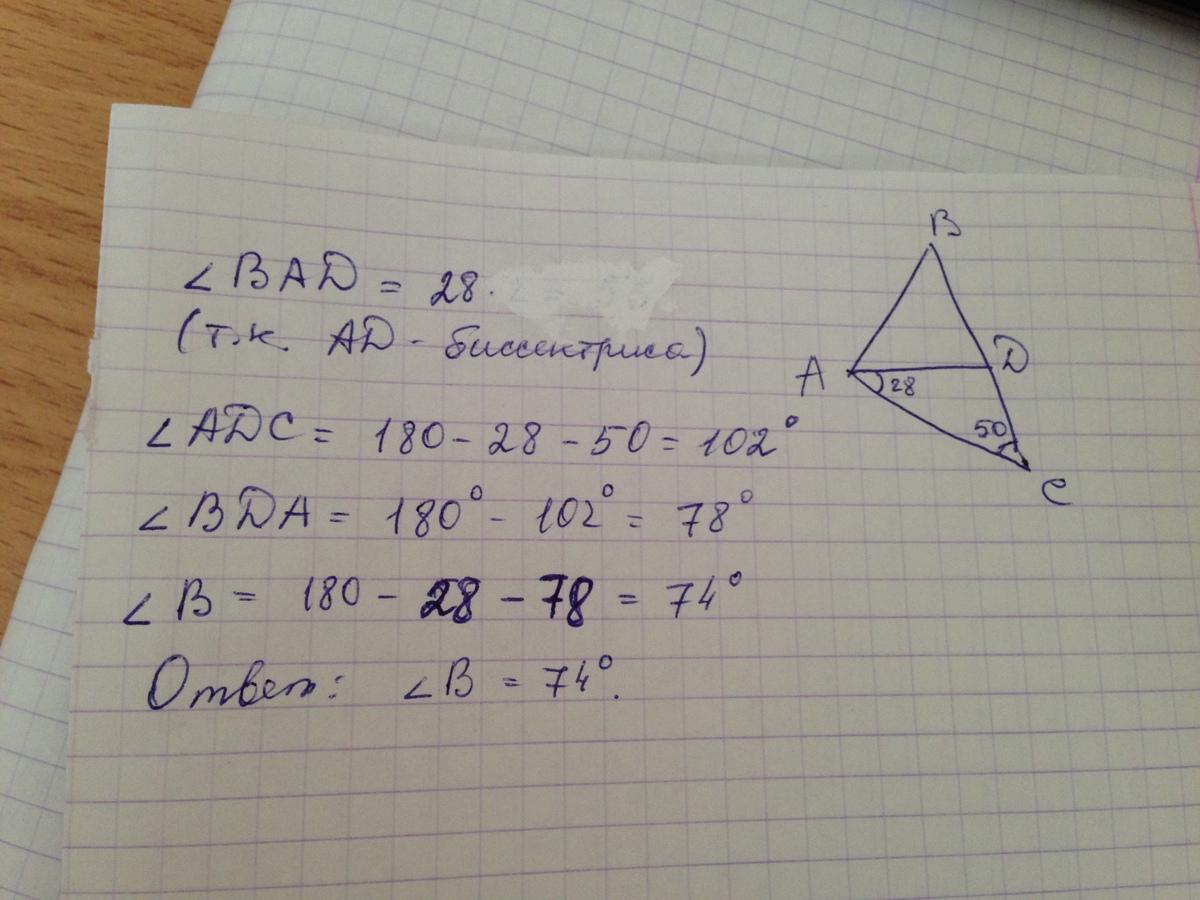 ∠BAD = 28.
(т.к. AD - биссектриса)
∠ADC = 180 - 28 - 50 = 102°
∠BDA = 180° - 102° = 78°
∠B = 180 - 28 - 78 = 74°
Ответ: ∠B = 74°.
B
A
D
28
50
C